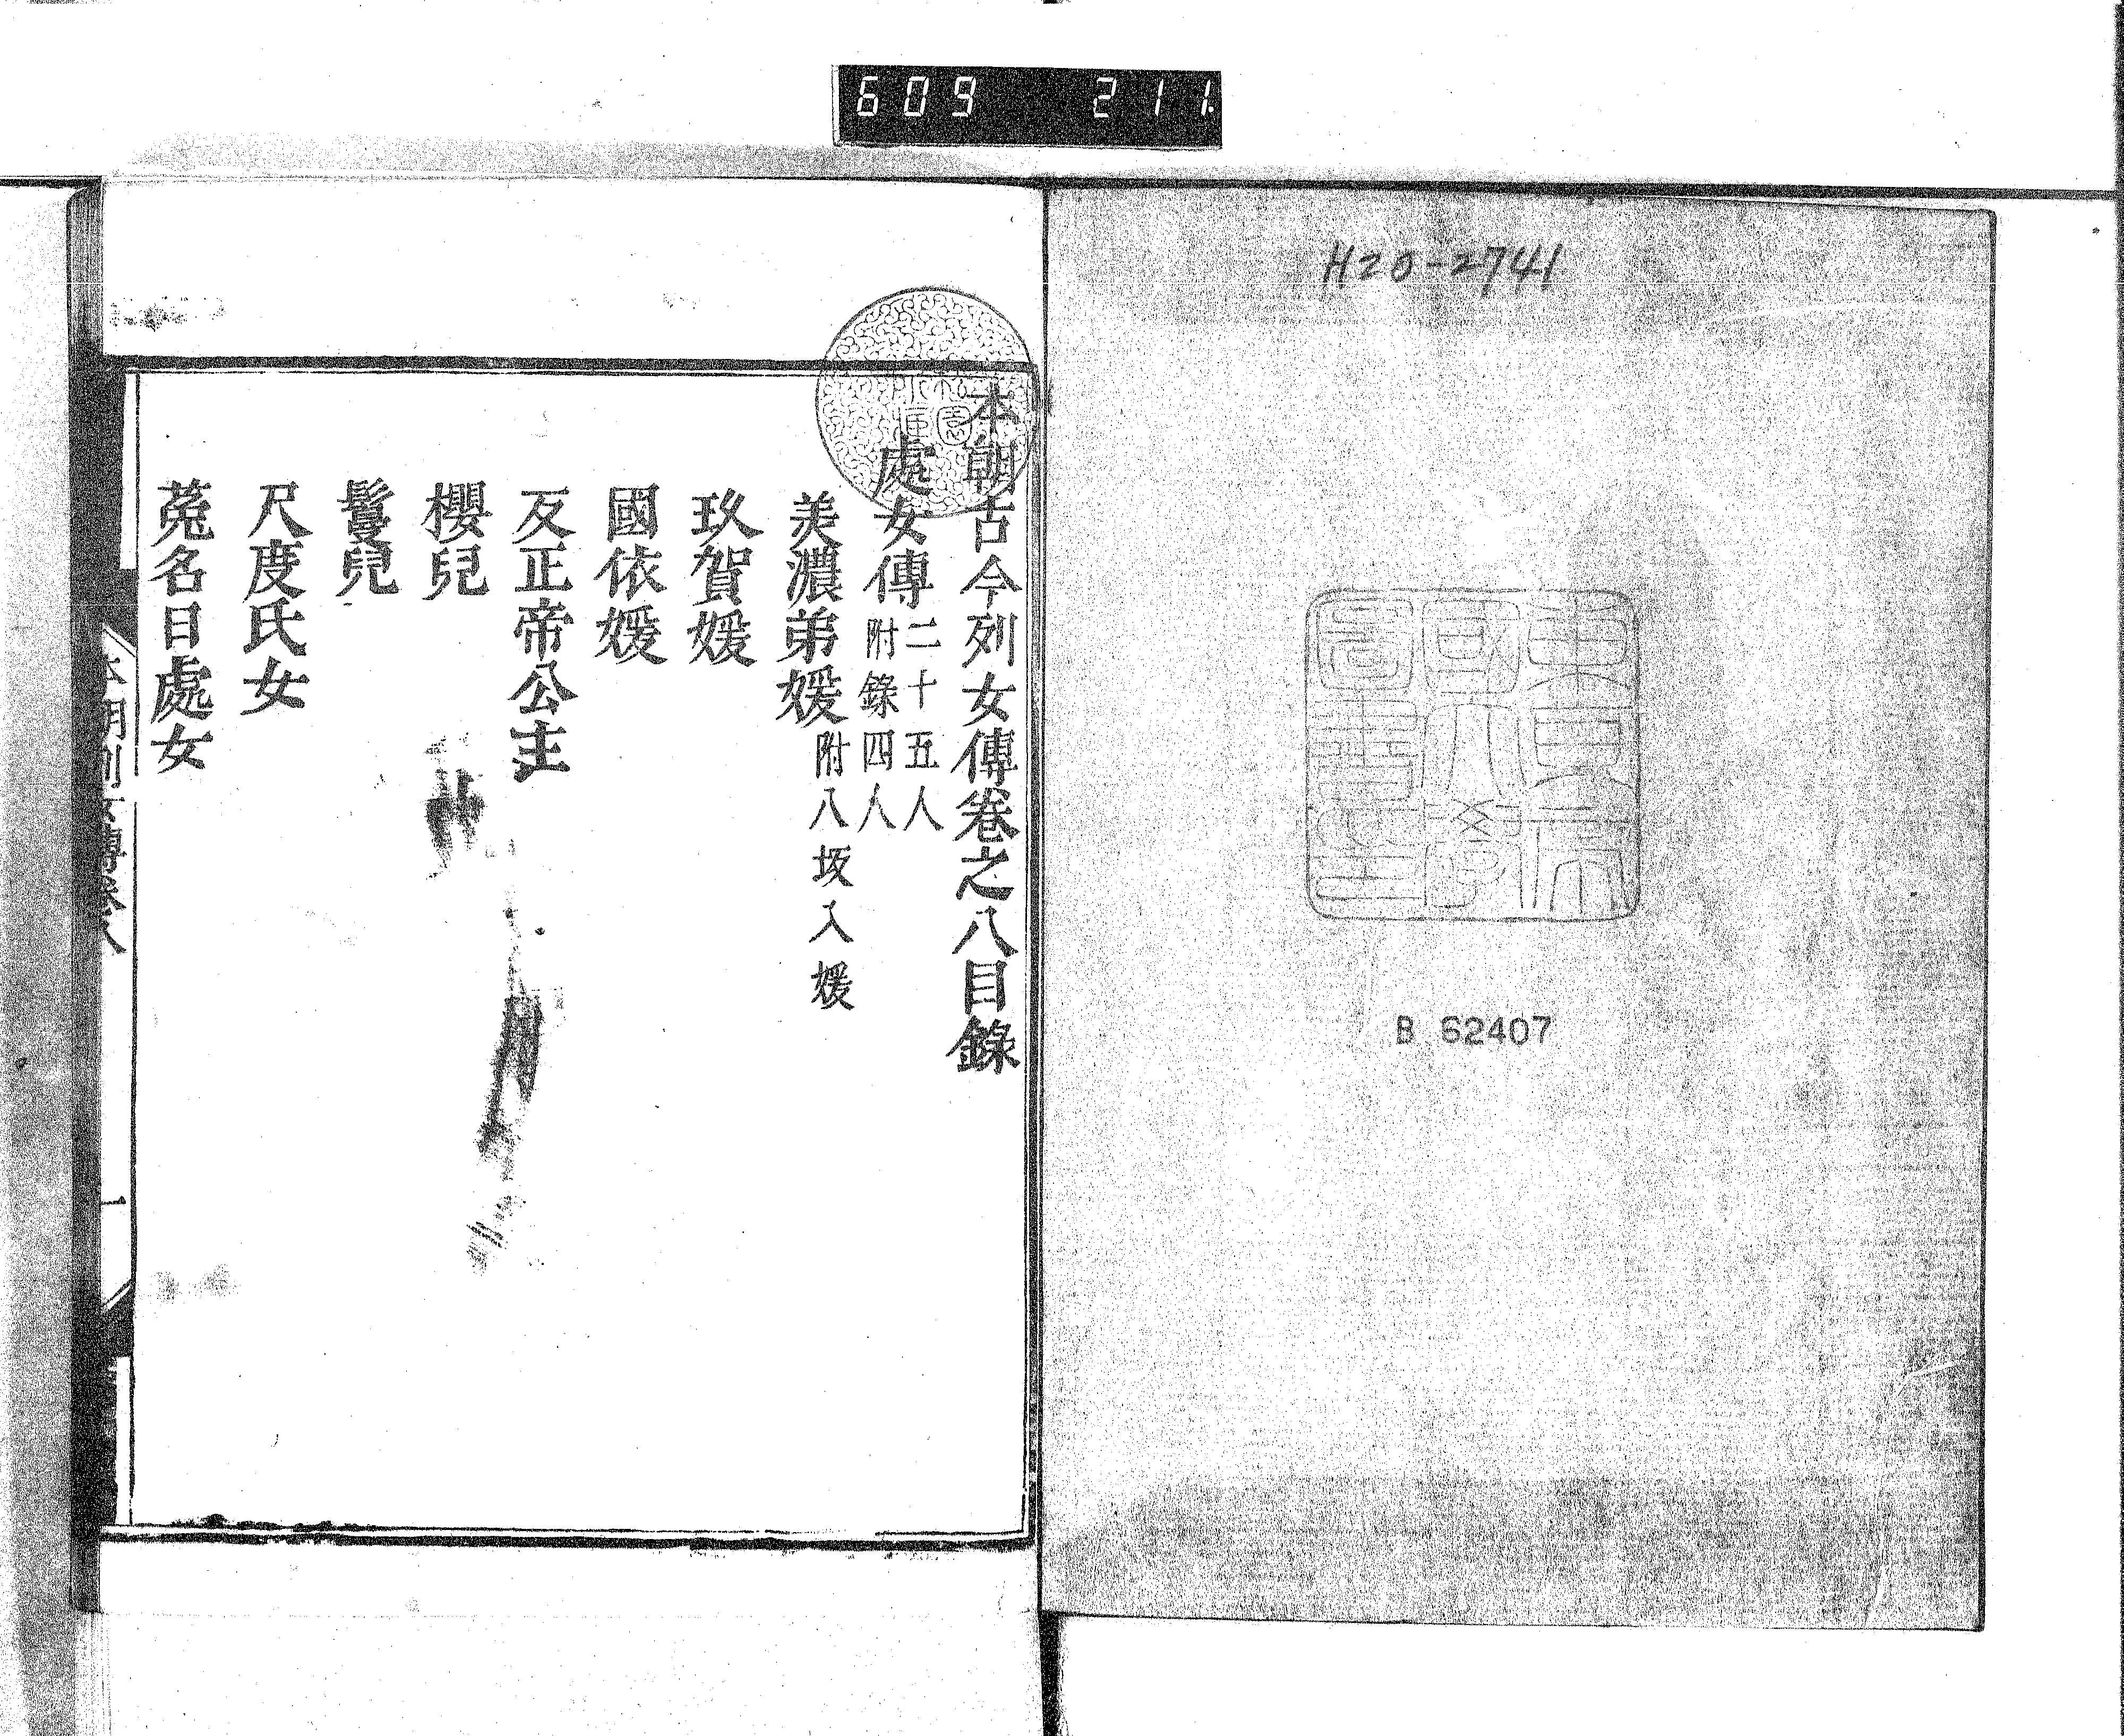 609 211
H20-2741
B 62407
本朝古今列女傳卷之八目錄
處女傳二十五人附錄四人
美濃弟媛附八坂入媛
玖賀媛
國依媛
反正帝公主
櫻兒
鬘兒
尺度氏女
菟名日處女
本朝列女傳卷八
一